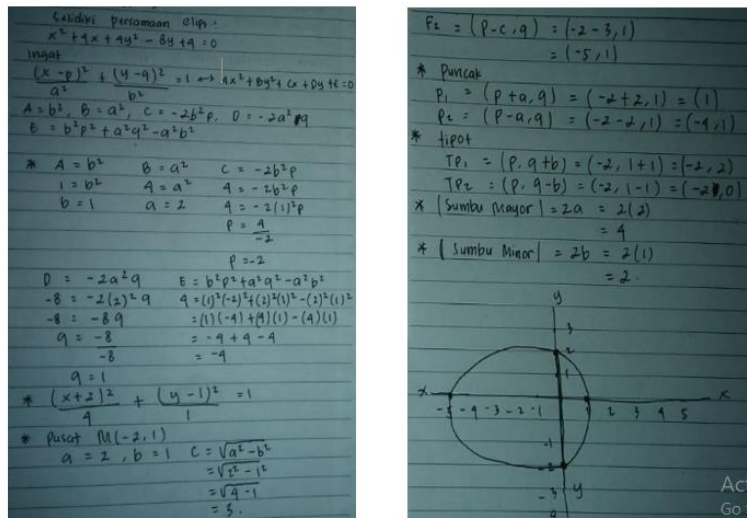 Selidiki persamaan elips.
x² + 4x + 4y² - 8y + 4 = 0
Ingat
(x - p)²/a² + (y - q)²/b² = 1 ↔ Ax² + By² + Cx + Dy + E = 0
A = b², B = a², C = -2b²p, D = -2a²q
E = b²p² + a²q² - a²b²
* A = b² B = a² C = -2b²p
1 = b² 4 = a² 4 = -2b²p
b = 1 a = 2 4 = -2(1)²p
p = 4/-2
p = -2
D = -2a²q E = b²p² + a²q² - a²b²
-8 = -2(2)²q 4 = (1)²(-2)² + (2)²(1)² - (2)²(1)²
-8 = -8q = (1)(-4) + (4)(1) - (4)(1)
q = -8/-8 = -4 + 4 - 4
= -4
q = 1
* (x + 2)²/4 + (y - 1)²/1 = 1
* Pusat M(-2, 1)
a = 2, b = 1 c = √a² - b²
= √2² - 1²
= √4 - 1
= 3.
F₂ = (p - c, q) = (-2 - 3, 1)
= (-5, 1)
* Puncak
P₁ = (p + a, q) = (-2 + 2, 1) = (1)
P₂ = (p - a, q) = (-2 - 2, 1) = (-4, 1)
* tipot
TP₁ = (p, q + b) = (-2, 1 + 1) = (-2, 2)
TP₂ = (p, q - b) = (-2, 1 - 1) = (-2, 0)
* |Sumbu Mayor| = 2a = 2(2)
= 4
* |Sumbu Minor| = 2b = 2(1)
= 2.
y
3
2
1
x -5 -4 -3 -2 -1 1 2 3 4 5 x
-1
-2
-3 y
Ac
Go